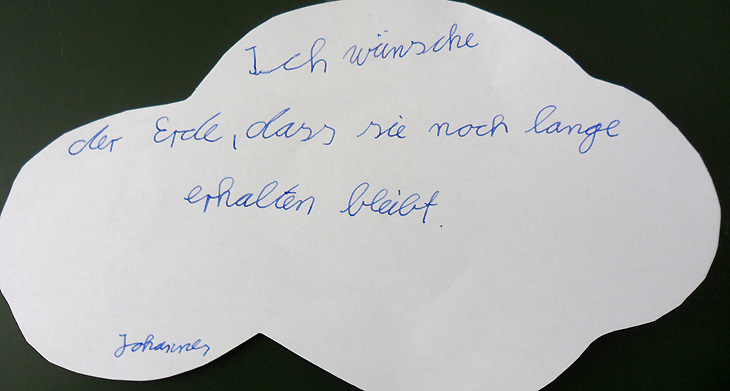 Ich wünsche
der Erde, dass sie noch lange
erhalten bleibt.
Johannes